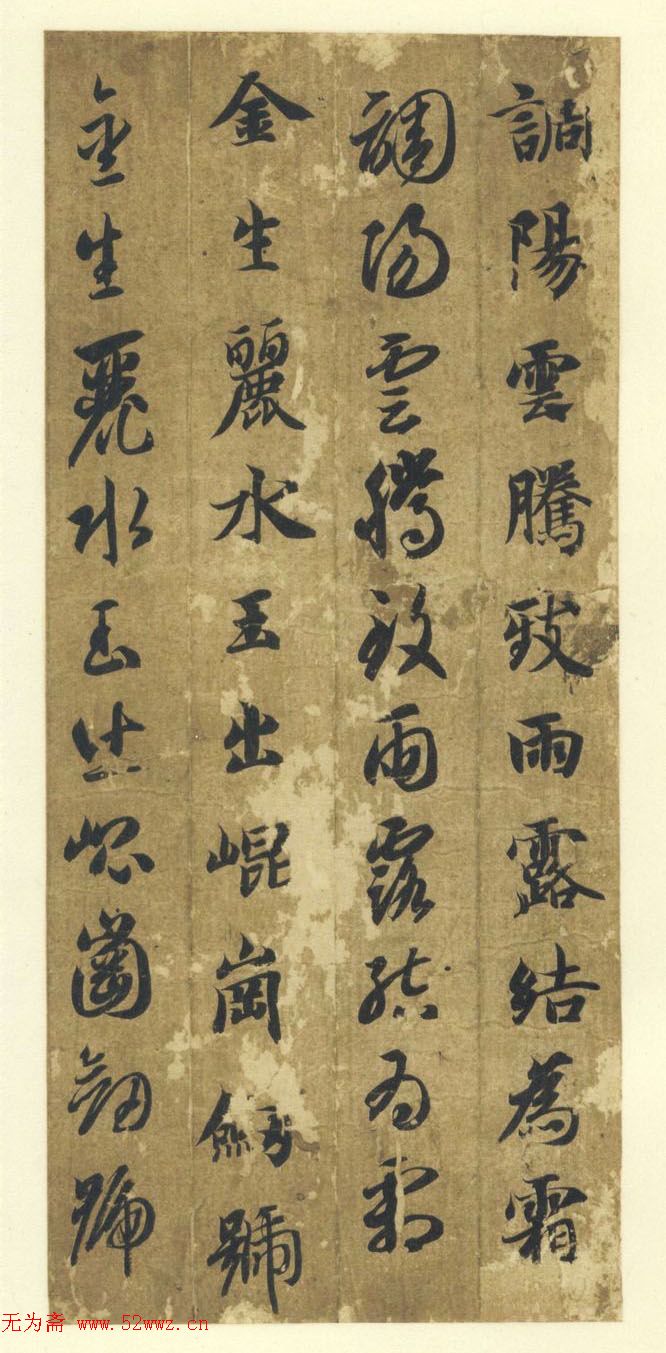 調陽雲騰致雨露結為霜
調陽雲騰致雨露結為霜
金生麗水玉出崐崗劔號
金生麗水玉出崐崗劔號
无为斋 www.52wwz.cn